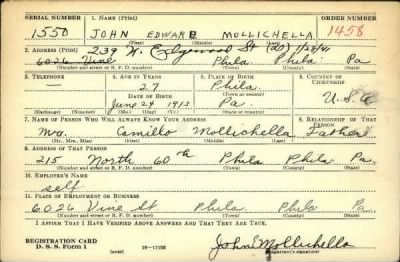 SERIAL NUMBER 1. NAME (Print) ORDER NUMBER
1550 JOHN EDWARD MOLLICHELLA 1458
(First) (Middle) (Last)
2. ADDRESS (Print) 239 W. Edgewood St (DS) 11/28/41
6026 Vine Phila Phila. Pa
(Number and street or R. F. D. number) (Town) (County) (State)
3. TELEPHONE 4. AGE IN YEARS 5. PLACE OF BIRTH 6. COUNTRY OF CITIZENSHIP
— 27 Phila.
DATE OF BIRTH (Town or county)
June 24 1913 Pa. U.S.A
(Exchange) (Number) (Mo.) (Day) (Yr.) (State or country)
7. NAME OF PERSON WHO WILL ALWAYS KNOW YOUR ADDRESS 8. RELATIONSHIP OF THAT PERSON
Mr. Camillo Mollichella Father
(Mr., Mrs., Miss) (First) (Middle) (Last)
9. ADDRESS OF THAT PERSON
215 North 60th Phila Phila. Pa.
(Number and street or R. F. D. number) (Town) (County) (State)
10. EMPLOYER'S NAME
self
11. PLACE OF EMPLOYMENT OR BUSINESS
6026 Vine St Phila Phila Pa
(Number and street or R. F. D. number) (Town) (County) (State)
I AFFIRM THAT I HAVE VERIFIED ABOVE ANSWERS AND THAT THEY ARE TRUE.
REGISTRATION CARD
D. S. S. Form 1 (over) 16—17105 John Mollichella
(Registrant's signature)